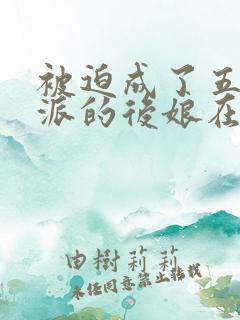 被迫成了五
派的後娘在
由樹莉莉
未经同意禁止转载